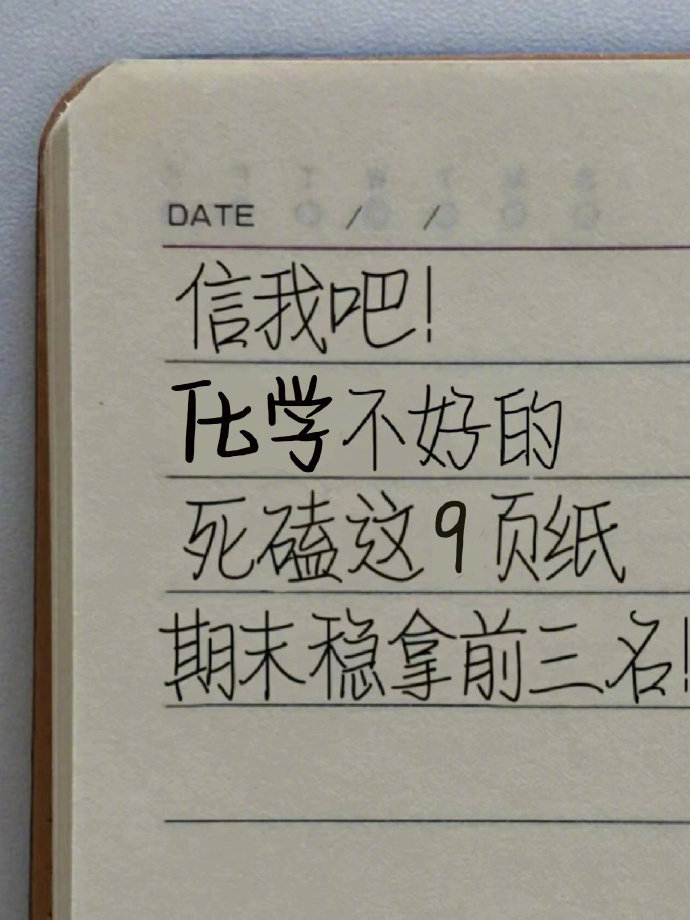 DATE / /
信我吧!
化学不好的
死磕这9页纸
期末稳拿前三名!